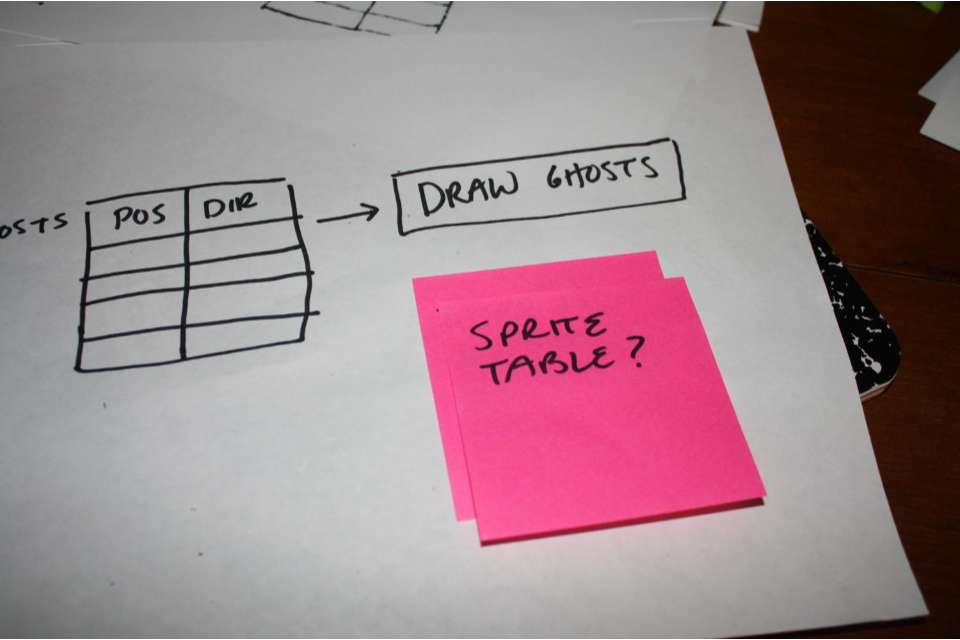 POS DIR
DRAW GHOSTS
SPRITE
TABLE?